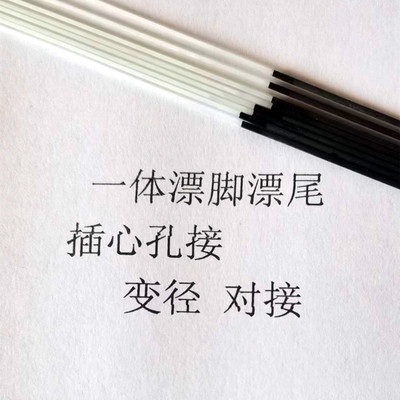 一体漂脚漂尾
插心孔接
变径 对接